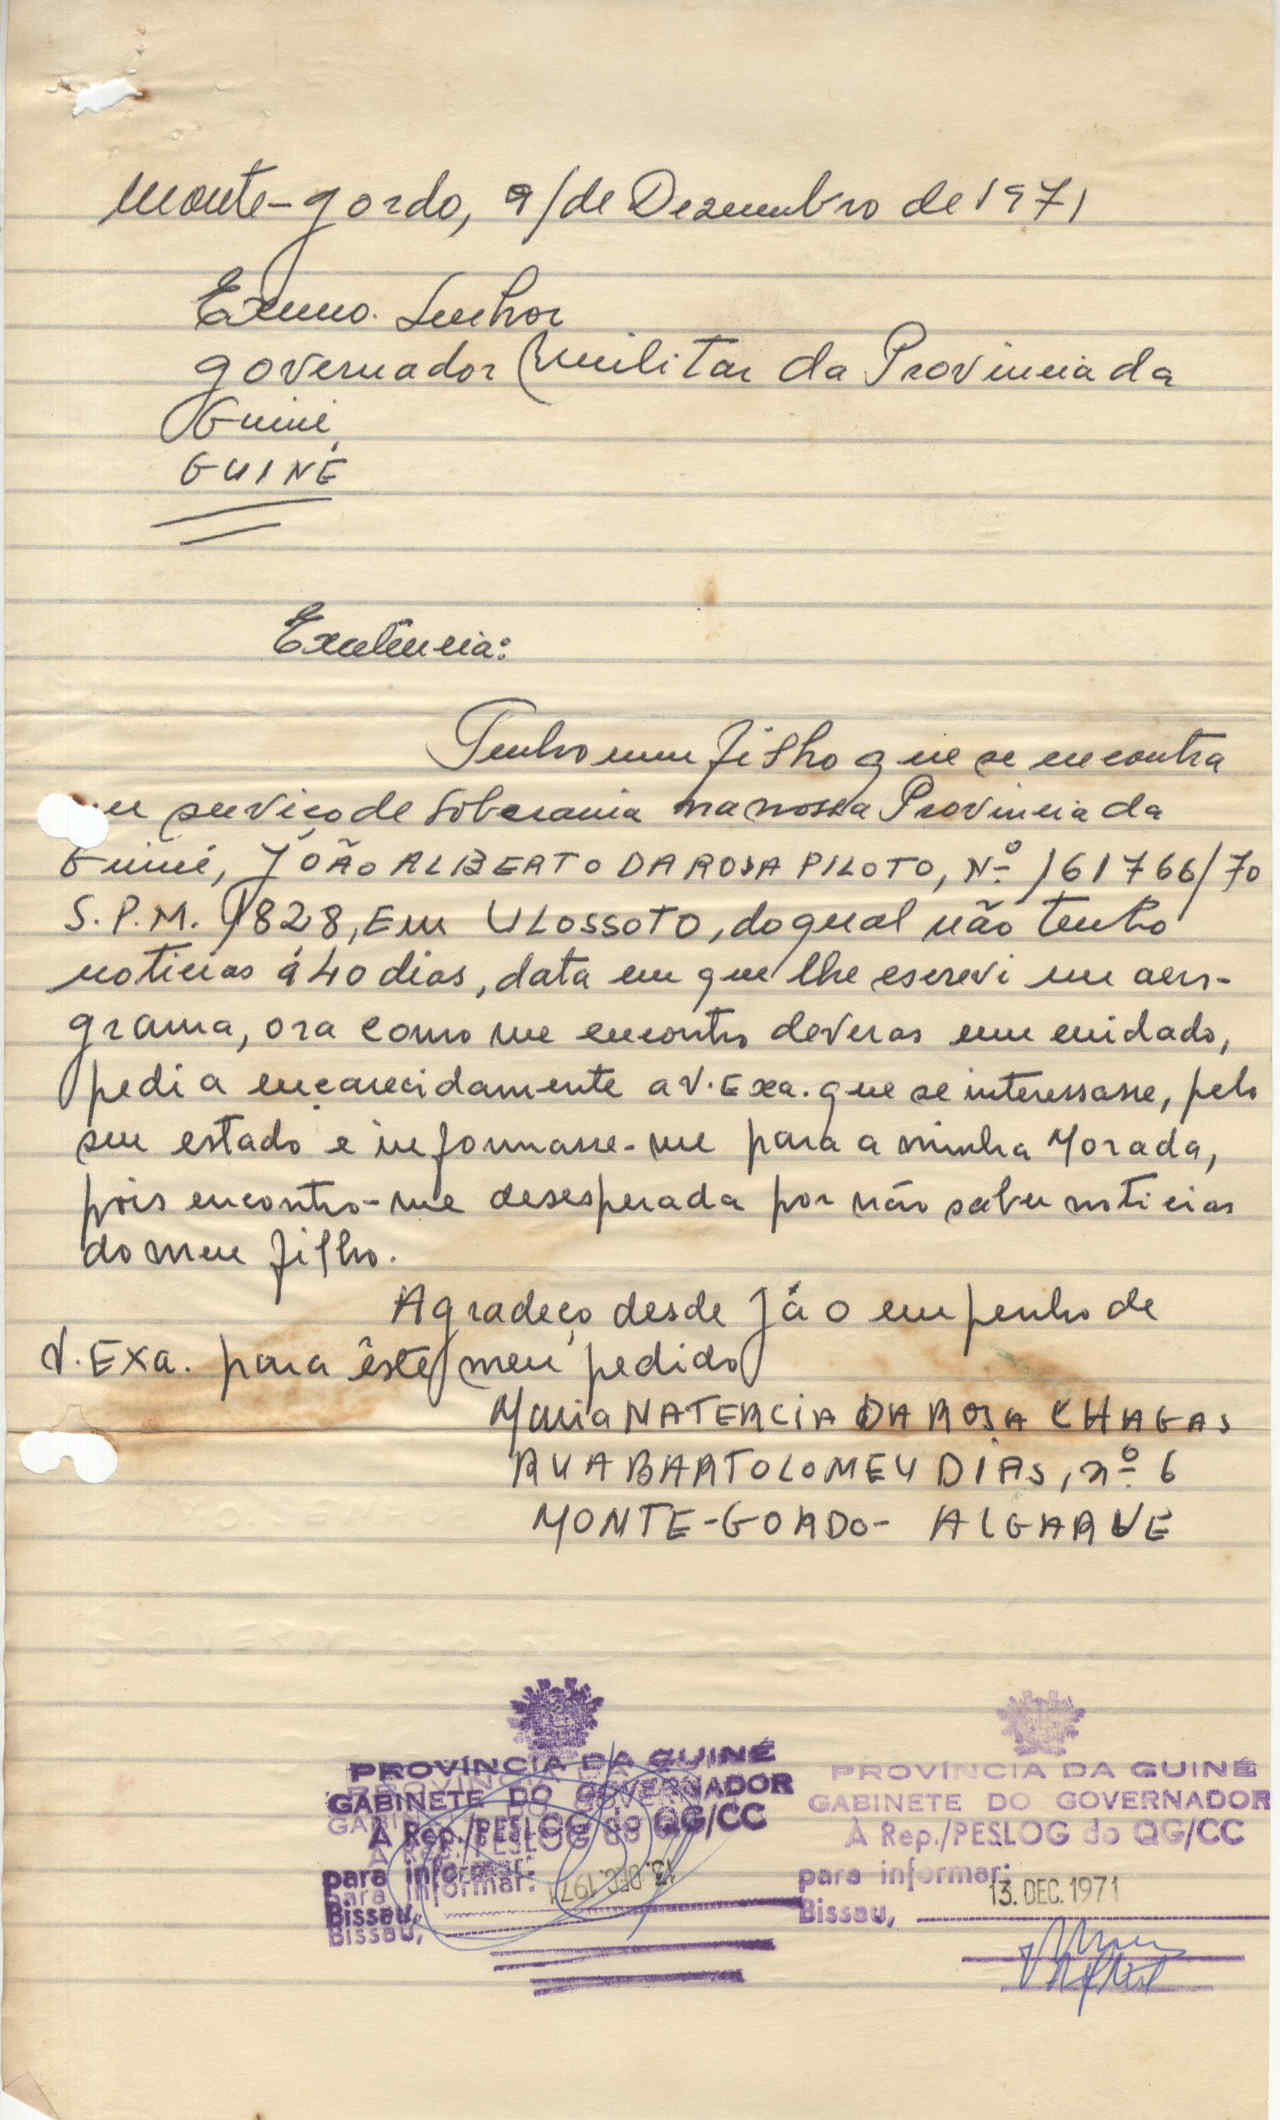 Monte-gordo, 9/de Dezembro de 1971
Exmo. Senhor
governador Militar da Provincia da
Guiné
GUINÉ
Excelência:
Tenho um filho que se encontra
em serviço de Soberania na nossa Provincia da
Guiné, JOÃO ALBERTO DA ROSA PILOTO, Nº 161766/70
S.P.M. 1828, Em OLOSSOTO, do qual não tenho
noticias á 40 dias, data em que lhe escrevi um aero-
grama, ora como me encontro deveras em cuidado,
pedia encarecidamente a V. Exa. que se interessasse, pelo
seu estado e informasse-me para a minha Morada,
pois encontro-me desesperada por não saber noticias
do meu filho.
Agradeço desde Já o empenho de
V. EXa. para êste meu pedido
Maria NATERCIA DA ROSA CHAGAS
RUA BARTOLOMEU DIAS, nº 6
MONTE-GORDO- ALGARVE
PROVÍNCIA DA GUINÉ
GABINETE DO GOVERNADOR
À Rep./PESLOG do QG/CC
para informar:
13. DEC. 1971
Bissau,
PROVÍNCIA DA GUINÉ
GABINETE DO GOVERNADOR
À Rep./PESLOG do QG/CC
para informar:
13. DEC. 1971
Bissau,